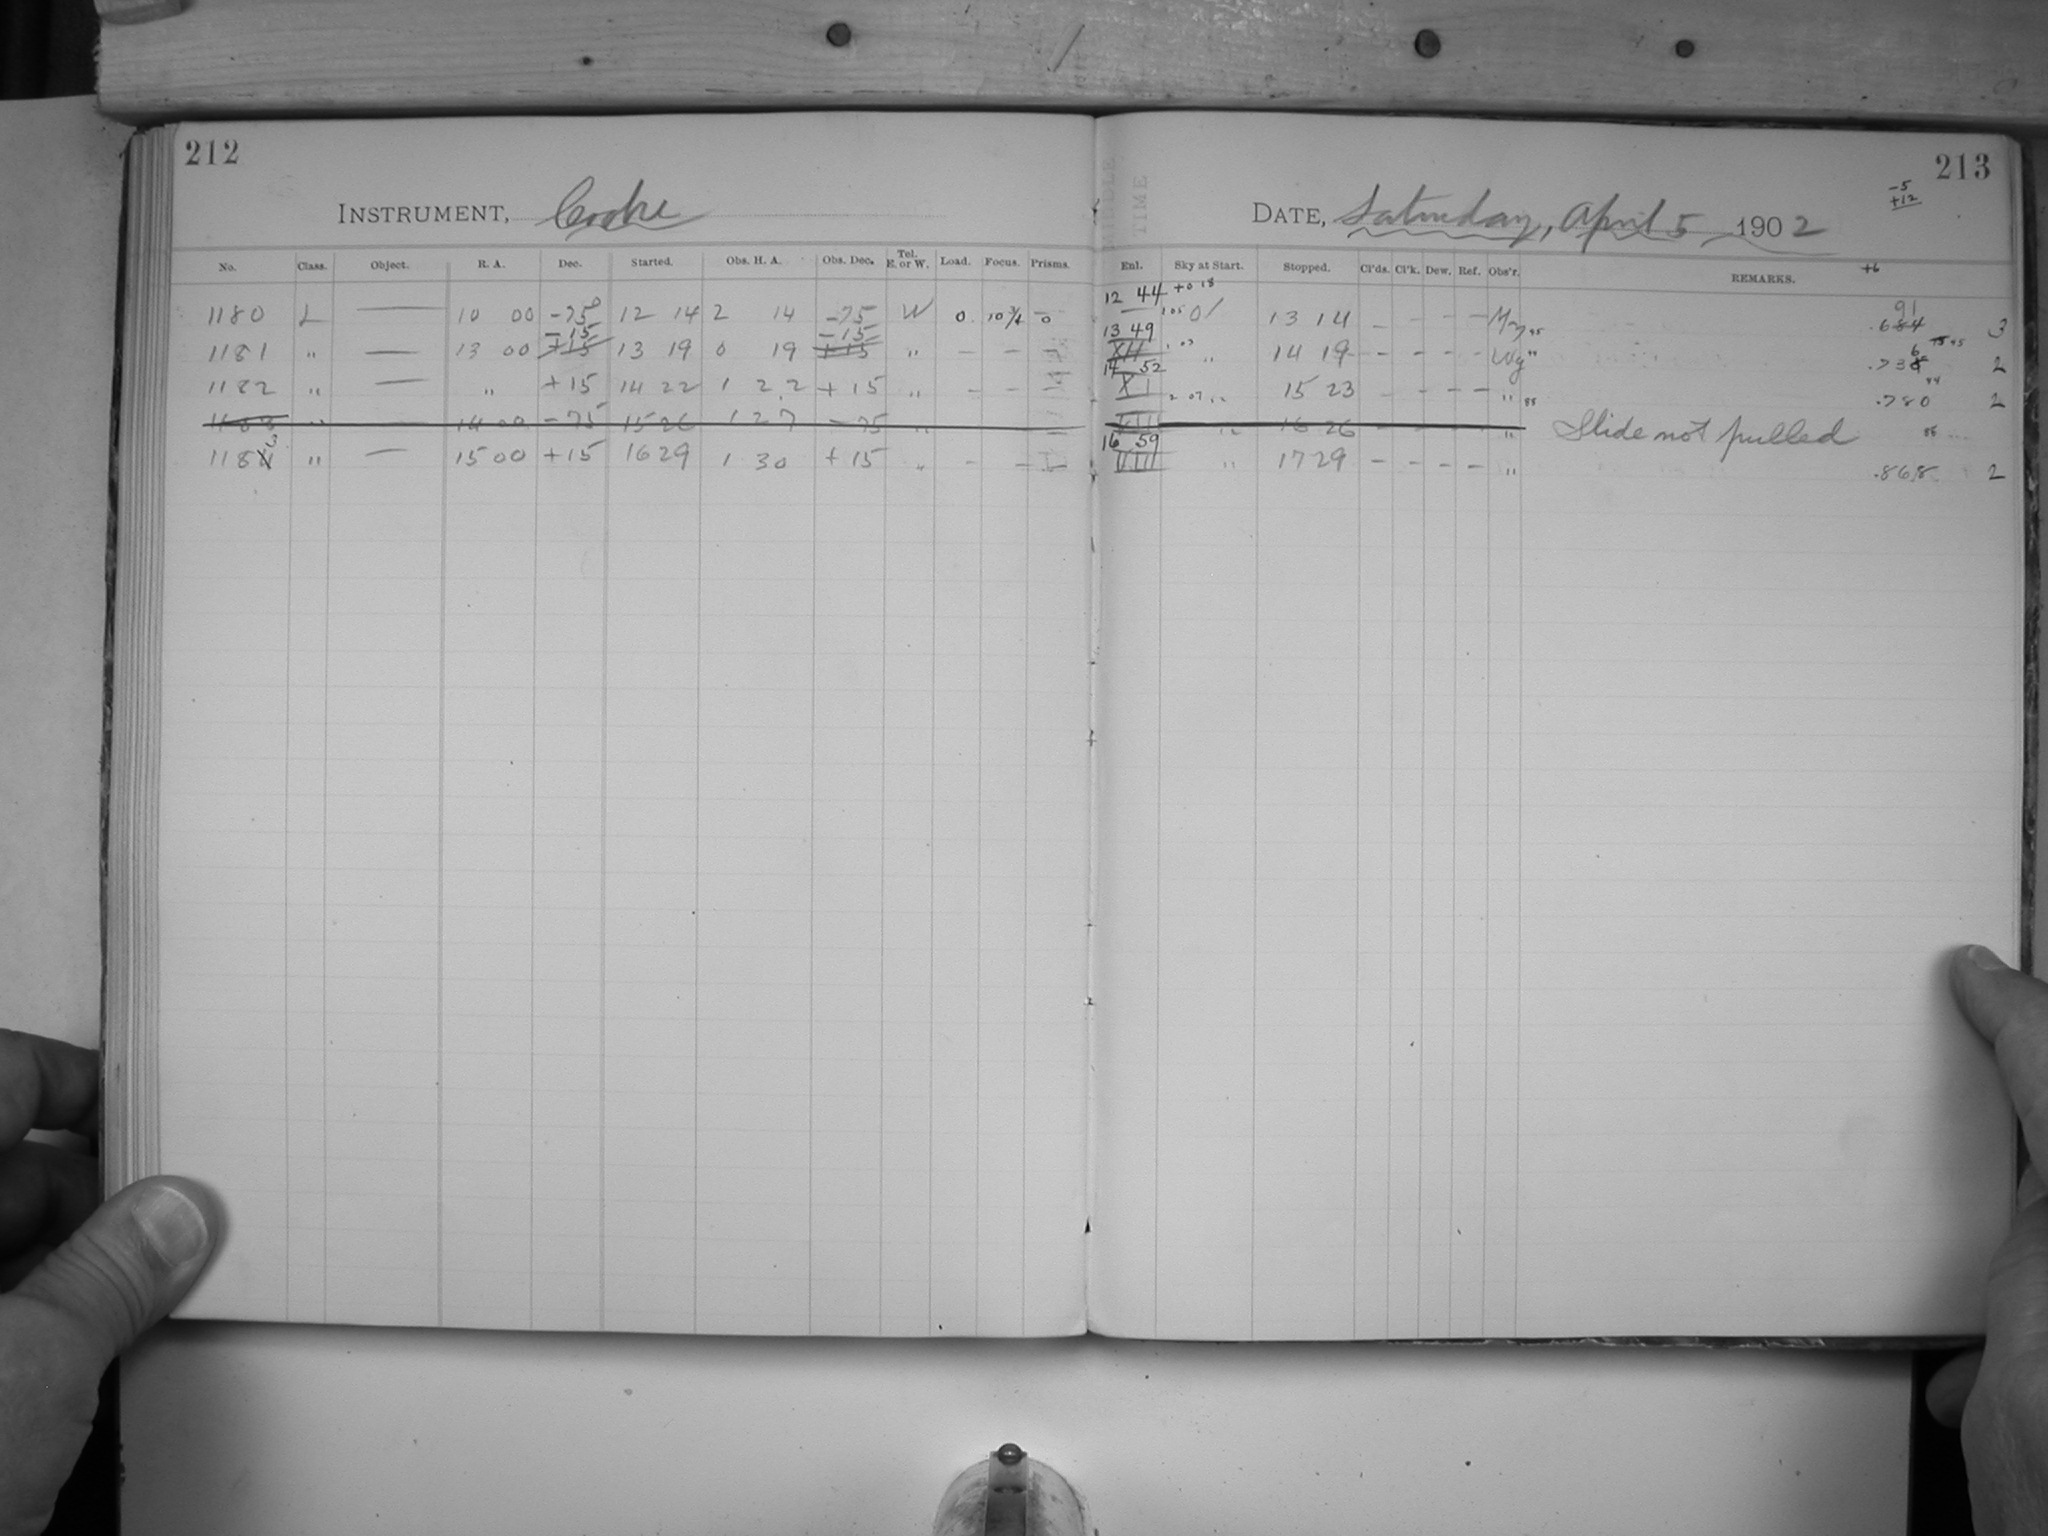 212
INSTRUMENT, Cooke
No. Class. Object. R. A. Dec. Started. Obs. H. A. Obs. Dec. Tel. E. or W. Load. Focus. Prisms.
1180 L — 10 00 -75 12 14 2 14 -75 W 0 10 3/4 0
-15 -15
1181 " — 13 00 +15 13 19 0 19 +15 " — — —
1182 " — " +15 14 22 1 22 +15 " — — —
1183 " 14 00 -75 15 26 1 27 -75 "
3
1184 " — 15 00 +15 16 29 1 30 +15 " — — —
213
-5
+12
DATE, Saturday, April 5, 1902
Enl. Sky at Start. Stopped. Cl'ds. Cl'k. Dew. Ref. Obs'r. REMARKS. +6
12 44 +0 18
105 01 13 14 — — — — My 91
.684 3
13 49
XII " 14 19 — — — — Wy .738 2
14 52
XI 15 23 — — — — " 88 .780 2
VIII " 16 26 — — — — " Slide not pulled 88
16 59
VIII " 17 29 — — — — " .868 2